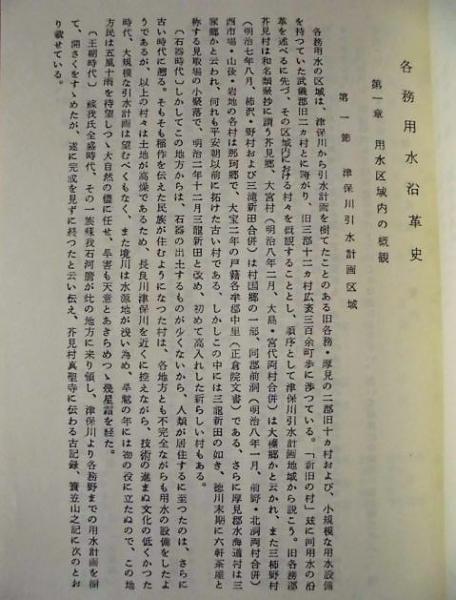 各務用水沿革史
第一章　用水区域内の概観
第一節　津保川引水計画区域
各務用水の区域は、津保川から引水計画を樹てたことのある旧各務・厚見の二郡旧十ヵ村および、小規模な用水設備
を持つていた武儀郡旧二ヵ村とに跨がり、旧三郡十二ヵ村広袤三百余町歩に渉つている。「新旧の村」玆に同用水の沿
革を述べるに先づ、その区域内における村々を概観することとし、順序として津保川引水計画地域から説こう。旧各務郡
芥見村は和名類聚抄に謂う芥見郷、大宮村（明治八年二月、大島・宮代両村合併）は大榛郷と云かれ、また三柿野村
（明治七年八月、柿沢・野村および三滝新田合併）は村国郷の一部、同郡前洞（明治八年一月、前野・北洞両村合併）
西市場・山後・岩地の各村は那珂郷で、大宝二年の戸籍各牟郡中里（正倉院文書）である、さらに厚見郡水海道村は三
家郷か と云われ、何れも平安朝以前に拓けた古い村である、しかしこの中には三龍新田の如き、徳川末期に六軒茶屋と
称する見取場の小聚落で、明治二年十二月三龍新田と改め、初めて高入れした新らしい村もある。
（石器時代）しかしてこの地方からは、石器の出土するものが少くないから、人類が居住するに至つたのは、さらに
古い時代に遡る。そもそも稲作を伝えた民族が住むようになつた村は、各地方とも不完全ながらも用水の設備をしたよ
うであるが、以上の村々は土地が高燥であるため、長良川津保川を近くに控えながら、技術の進まぬ文化の低くかつた
時代、大規模な引水計画は望むべくもなく、また境川は水源地が浅い為め、旱魃の年には物の役に立たぬので、この地
方民は五風十雨を待望しつゝ大自然の儘に任せ、旱害も天意とあきらめつゝ幾星霜を経た。
（王朝時代）　蘇我氏全盛時代、その一族蘇我石河麿が此の地方に来り領し、津保川より各務野までの用水計画を樹
て、開さくをすゝめたが、遂に完成を見ずに終つたと云い伝え、芥見村真聖寺に伝わる古記録、簑笠山之記に次のとお
り載せている。